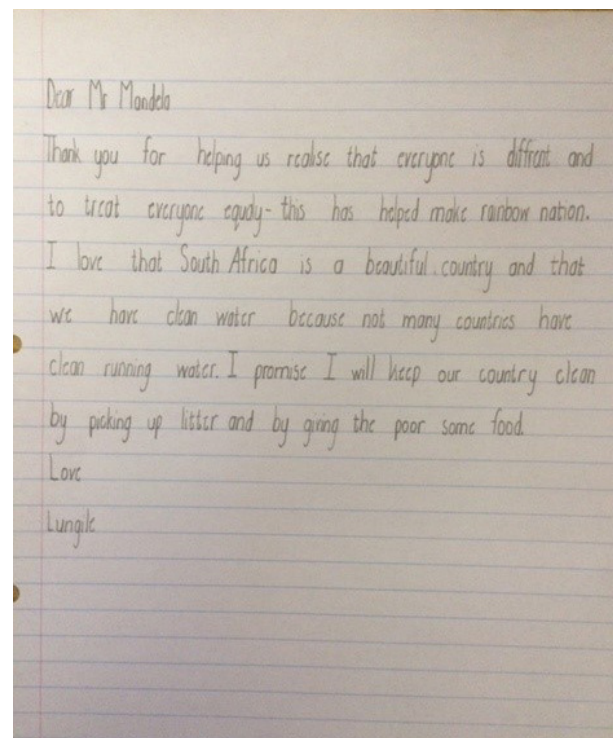 Dear Mr Mandela
Thank you for helping us realise that everyone is diffrent and
to treat everyone equdy- this has helped make ranbow nation.
I love that South Africa is a beautiful country and that
we have clean water because not many countries have
clean running water. I promise I will keep our country clean
by picking up litter and by giving the poor some food.
Love
Lungile